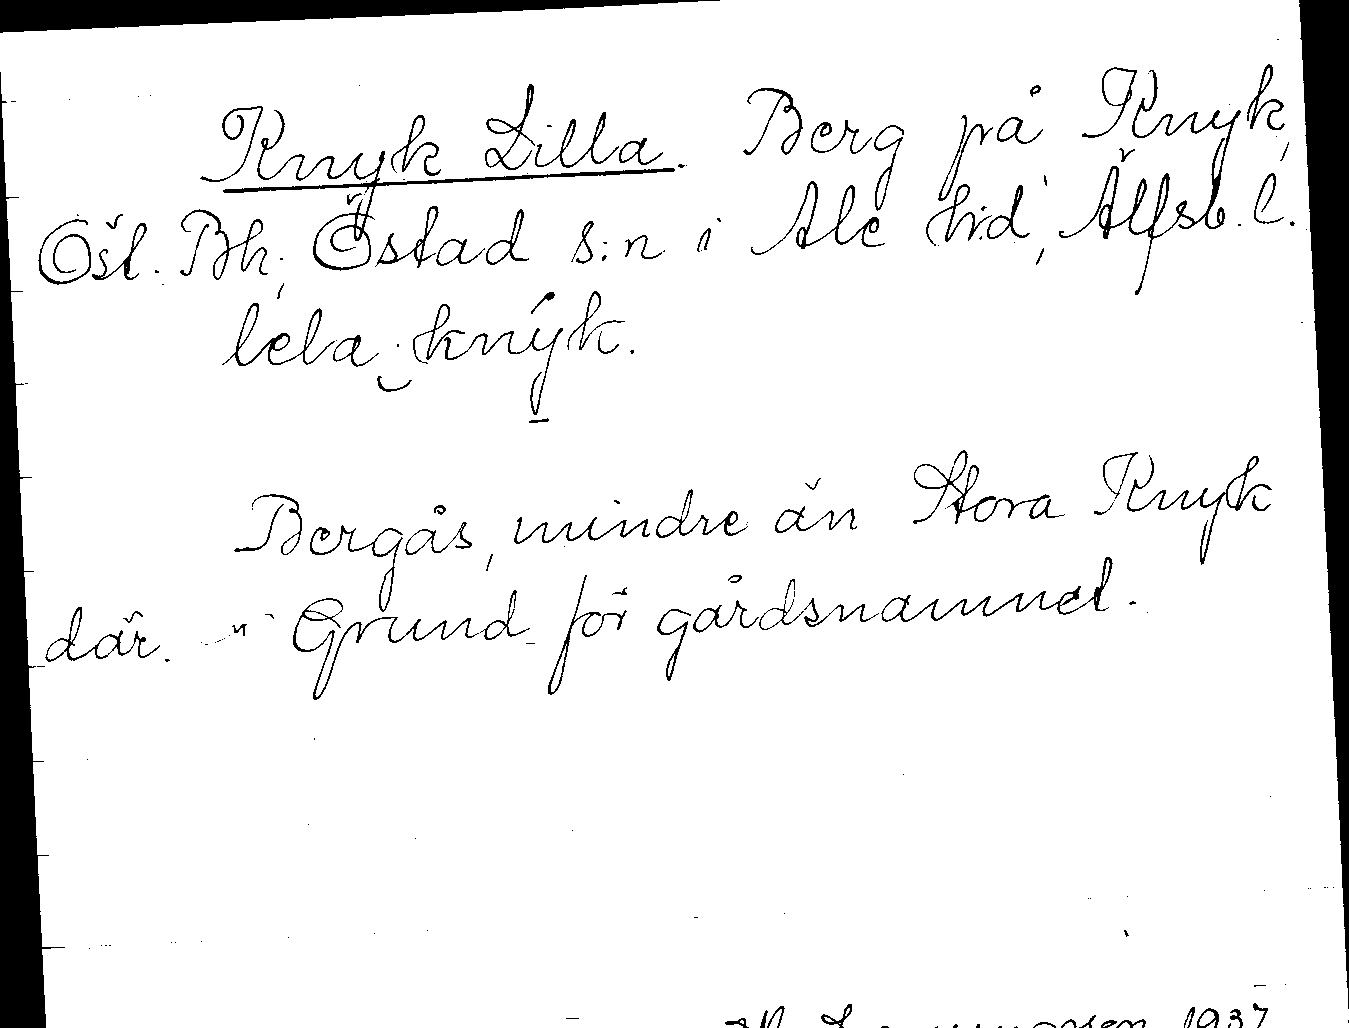 Knyk Lilla. Berg på Knyk,
Östad s:n i Ale hd, Älfsb. l.
Bergås, mindre än Stora Knyk
där. — Grund för gårdsnamnet.
1937